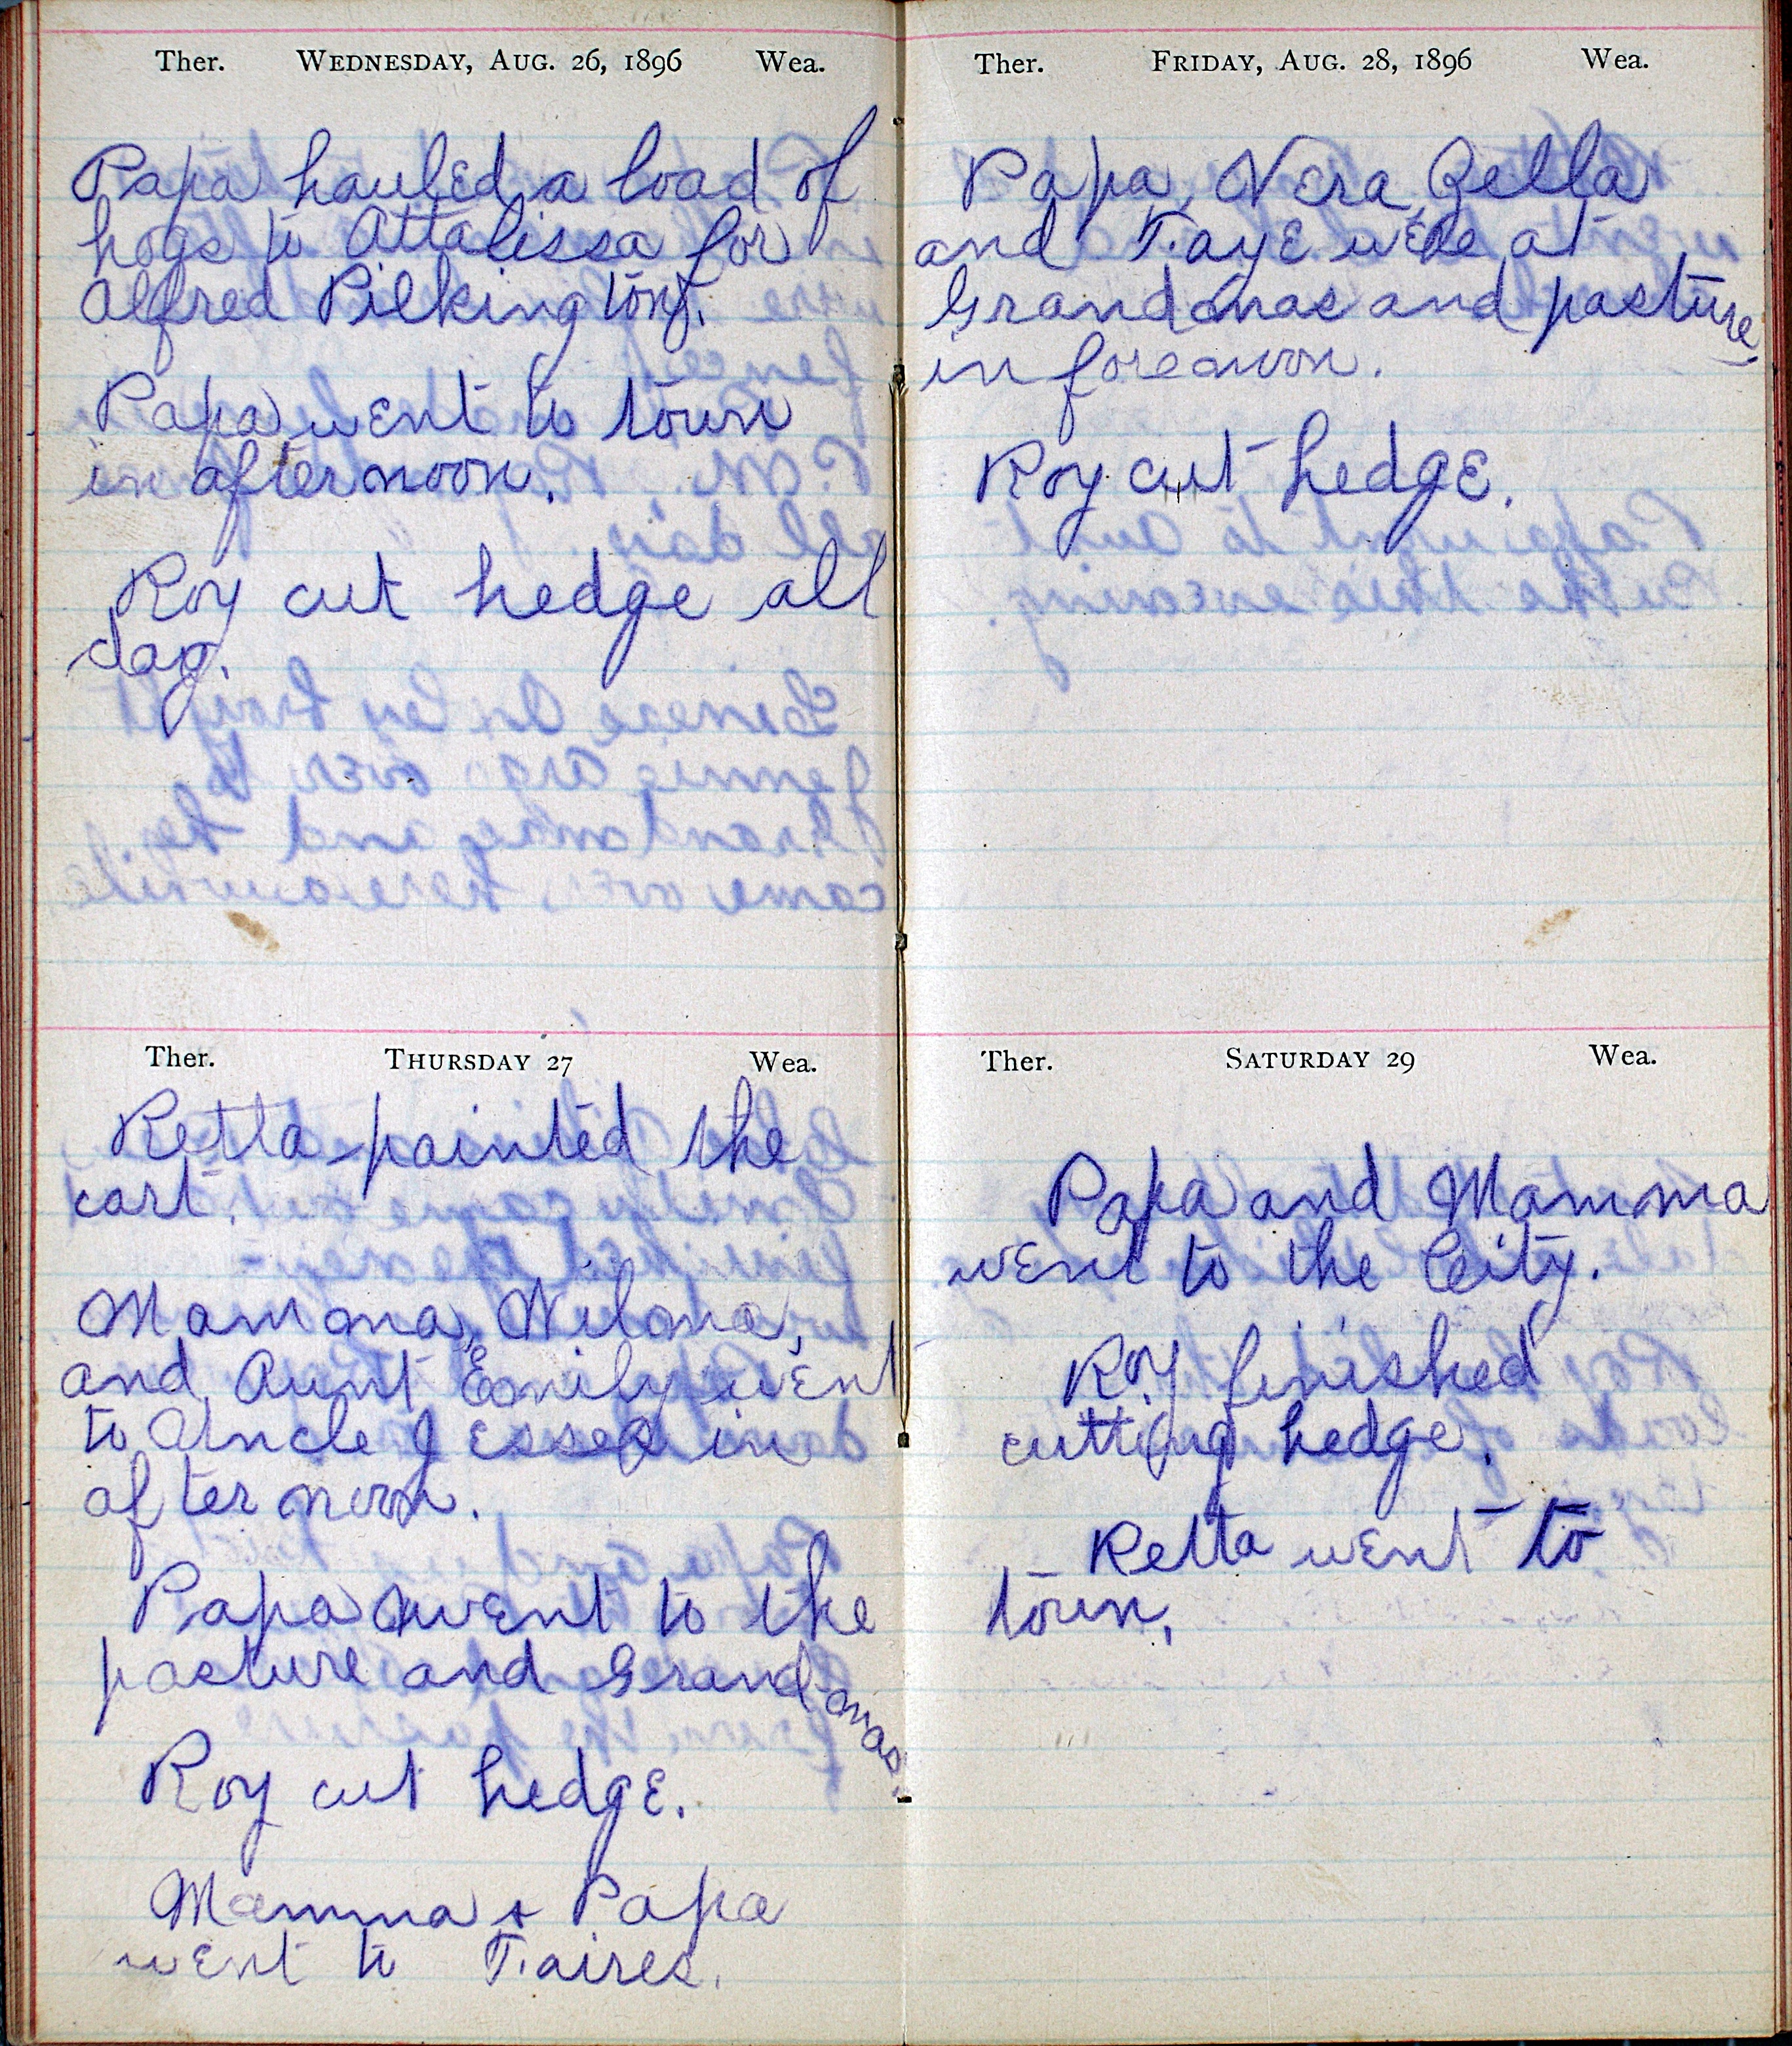 Ther. Wednesday, Aug. 26, 1896 Wea.
Papa hauled a load of
hogs to Attalissa for
Alfred Pilkington.
Papa went to town
in afternoon.
Roy cut hedge all
day.
Ther. Thursday 27 Wea.
Retta painted the
cart.
Mamma, Wilma,
and Aunt Emily went
to Uncle Jesses in
afternoon.
Papa went to the
pasture and Grandmas.
Roy cut hedge.
Mamma & Papa
went to Faires.
Ther. Friday, Aug. 28, 1896 Wea.
Papa, Vera, Zella
and Faye were at
Grandmas and pasture
in forenoon.
Roy cut hedge.
Ther. Saturday 29 Wea.
Papa and Mamma
went to the City.
Roy finished
cutting hedge.
Retta went to
town.